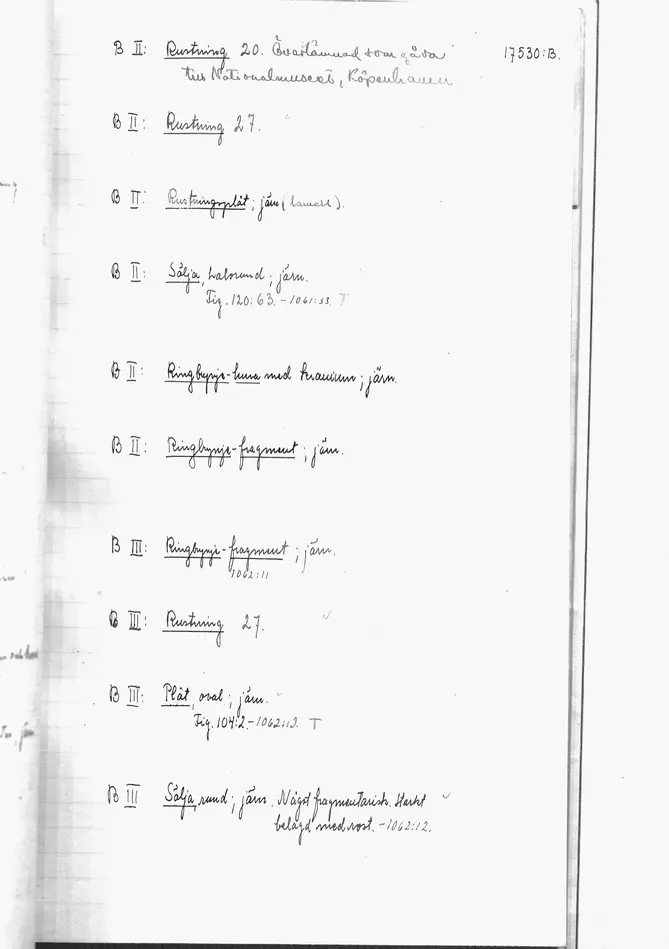 B II: Rustning 20. Överlämnad som gåva 17530:B.
till Nationalmuseet, Köpenhamn
B II: Rustning 27.
B II: Rustningsplåt; järn (lamell).
B II: Sölja, halvrund; järn.
Fig. 120:63. - 1061:33. T
B II: Ringbrynje-huva med kranium; järn.
B II: Ringbrynje-fragment; järn.
B III: Ringbrynje-fragment; järn.
1062:11
B III: Rustning 27.
B III: Plåt, oval; järn.
Fig. 104:2. - 1062:13. T
B III Sölja, rund; järn. Något fragmentarisk. Starkt
belagd med rost. - 1062:12.